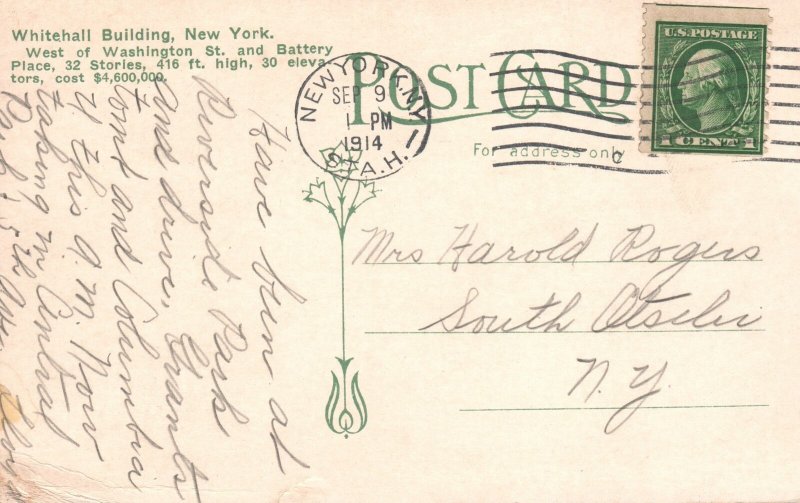 Whitehall Building, New York.
West of Washington St. and Battery
Place, 32 Stories, 416 ft. high, 30 eleva-
tors, cost $4,600,000.
POST CARD
For address only
NEW YORK, N.Y.
SEP 9
1 PM
1914
STA. H.
U.S. POSTAGE
1 CENT 1
Have been at
Riverside Park
and drive, Grants
tomb and Columbia
U this a.m. Now
taking in Central
Park & 5th Ave.
Mrs Harold Rogers
South Otselic
N.Y.